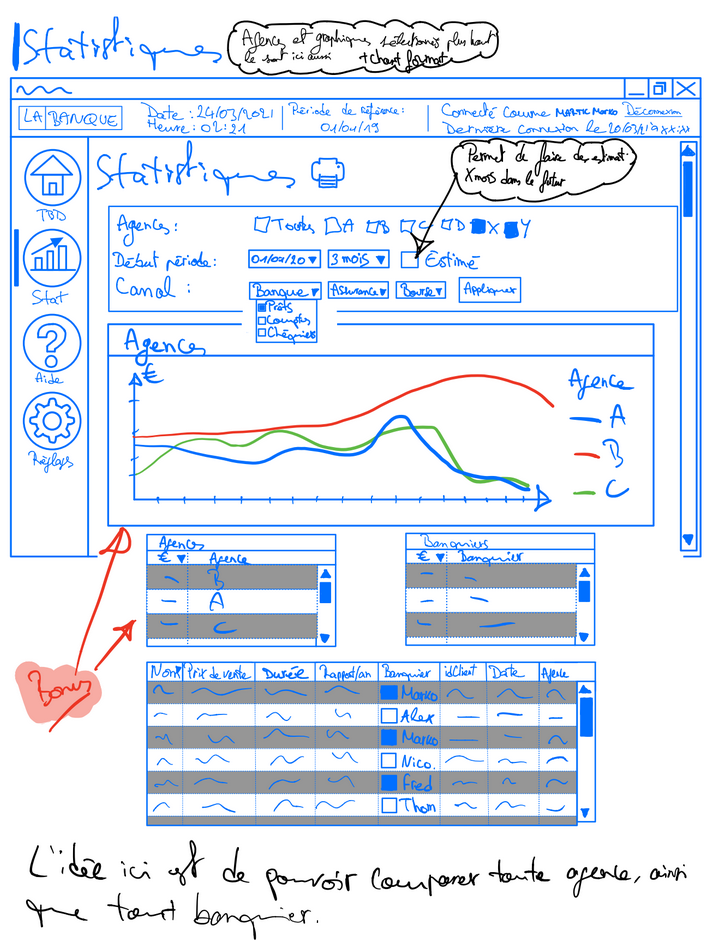 Statistiques
Agences et graphiques sélectionnés plus haut
le sont ici aussi + chant format
LA BANQUE
Date : 24/03/2021
Heure : 02:21
Période de référence :
01/01/19
Connecté comme MARTIC MARKO Déconnexion
Dernière connexion le 20/03/21 à xx:xx
Statistiques
Permet de faire des estimat.
X mois dans le futur
TBD
Stat
Aide
Réglages
Agences : Toutes A B C D X Y
Début période : 01/01/20 3 mois Estimé
Canal : Banque Assurance Bourse Appliquer
Prêts
Comptes
Chéquier
Agences
€
Agence
A
B
C
Agences
€ Agence
B
A
C
Banquiers
€ Banquier
Bonus
Nom Prix de vente Durée Rapport/an Banquier idClient Date Agence
Marko
Alex
Marko
Nico.
Fred
Thom
L'idée ici est de pouvoir comparer toute agence, ainsi
que tout banquier.